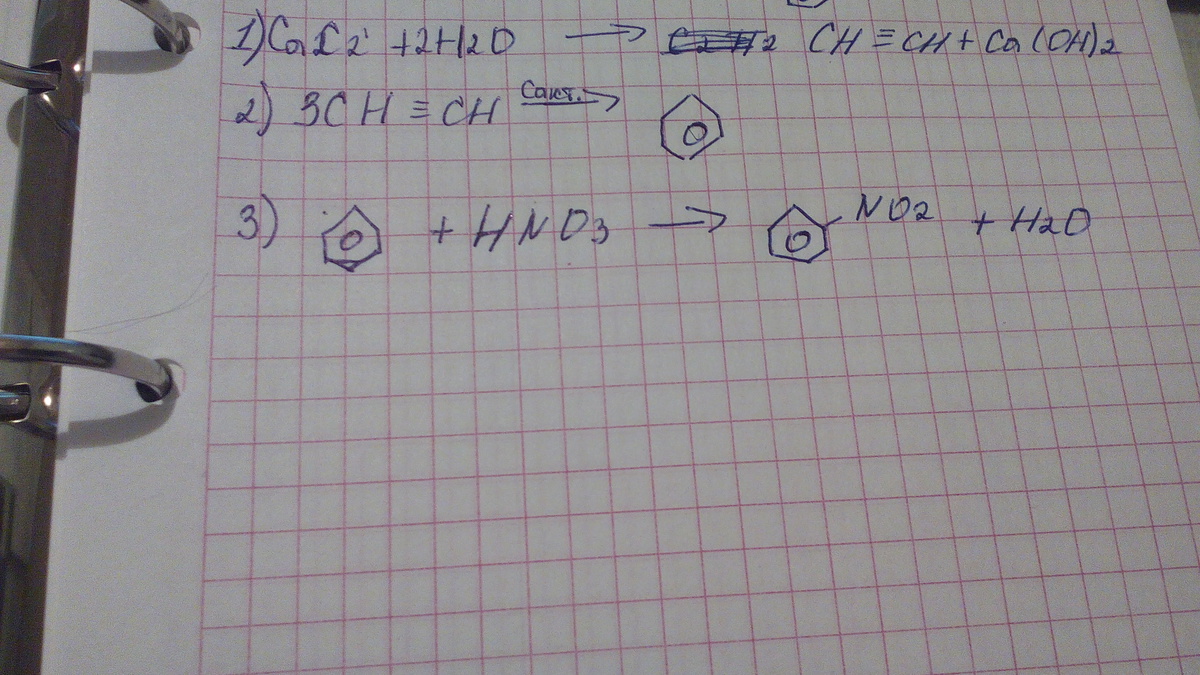 1) CaC2 + 2H2O → CH ≡ CH + Ca(OH)2
2) 3CH ≡ CH Cакт. →
3) + HNO3 → NO2 + H2O